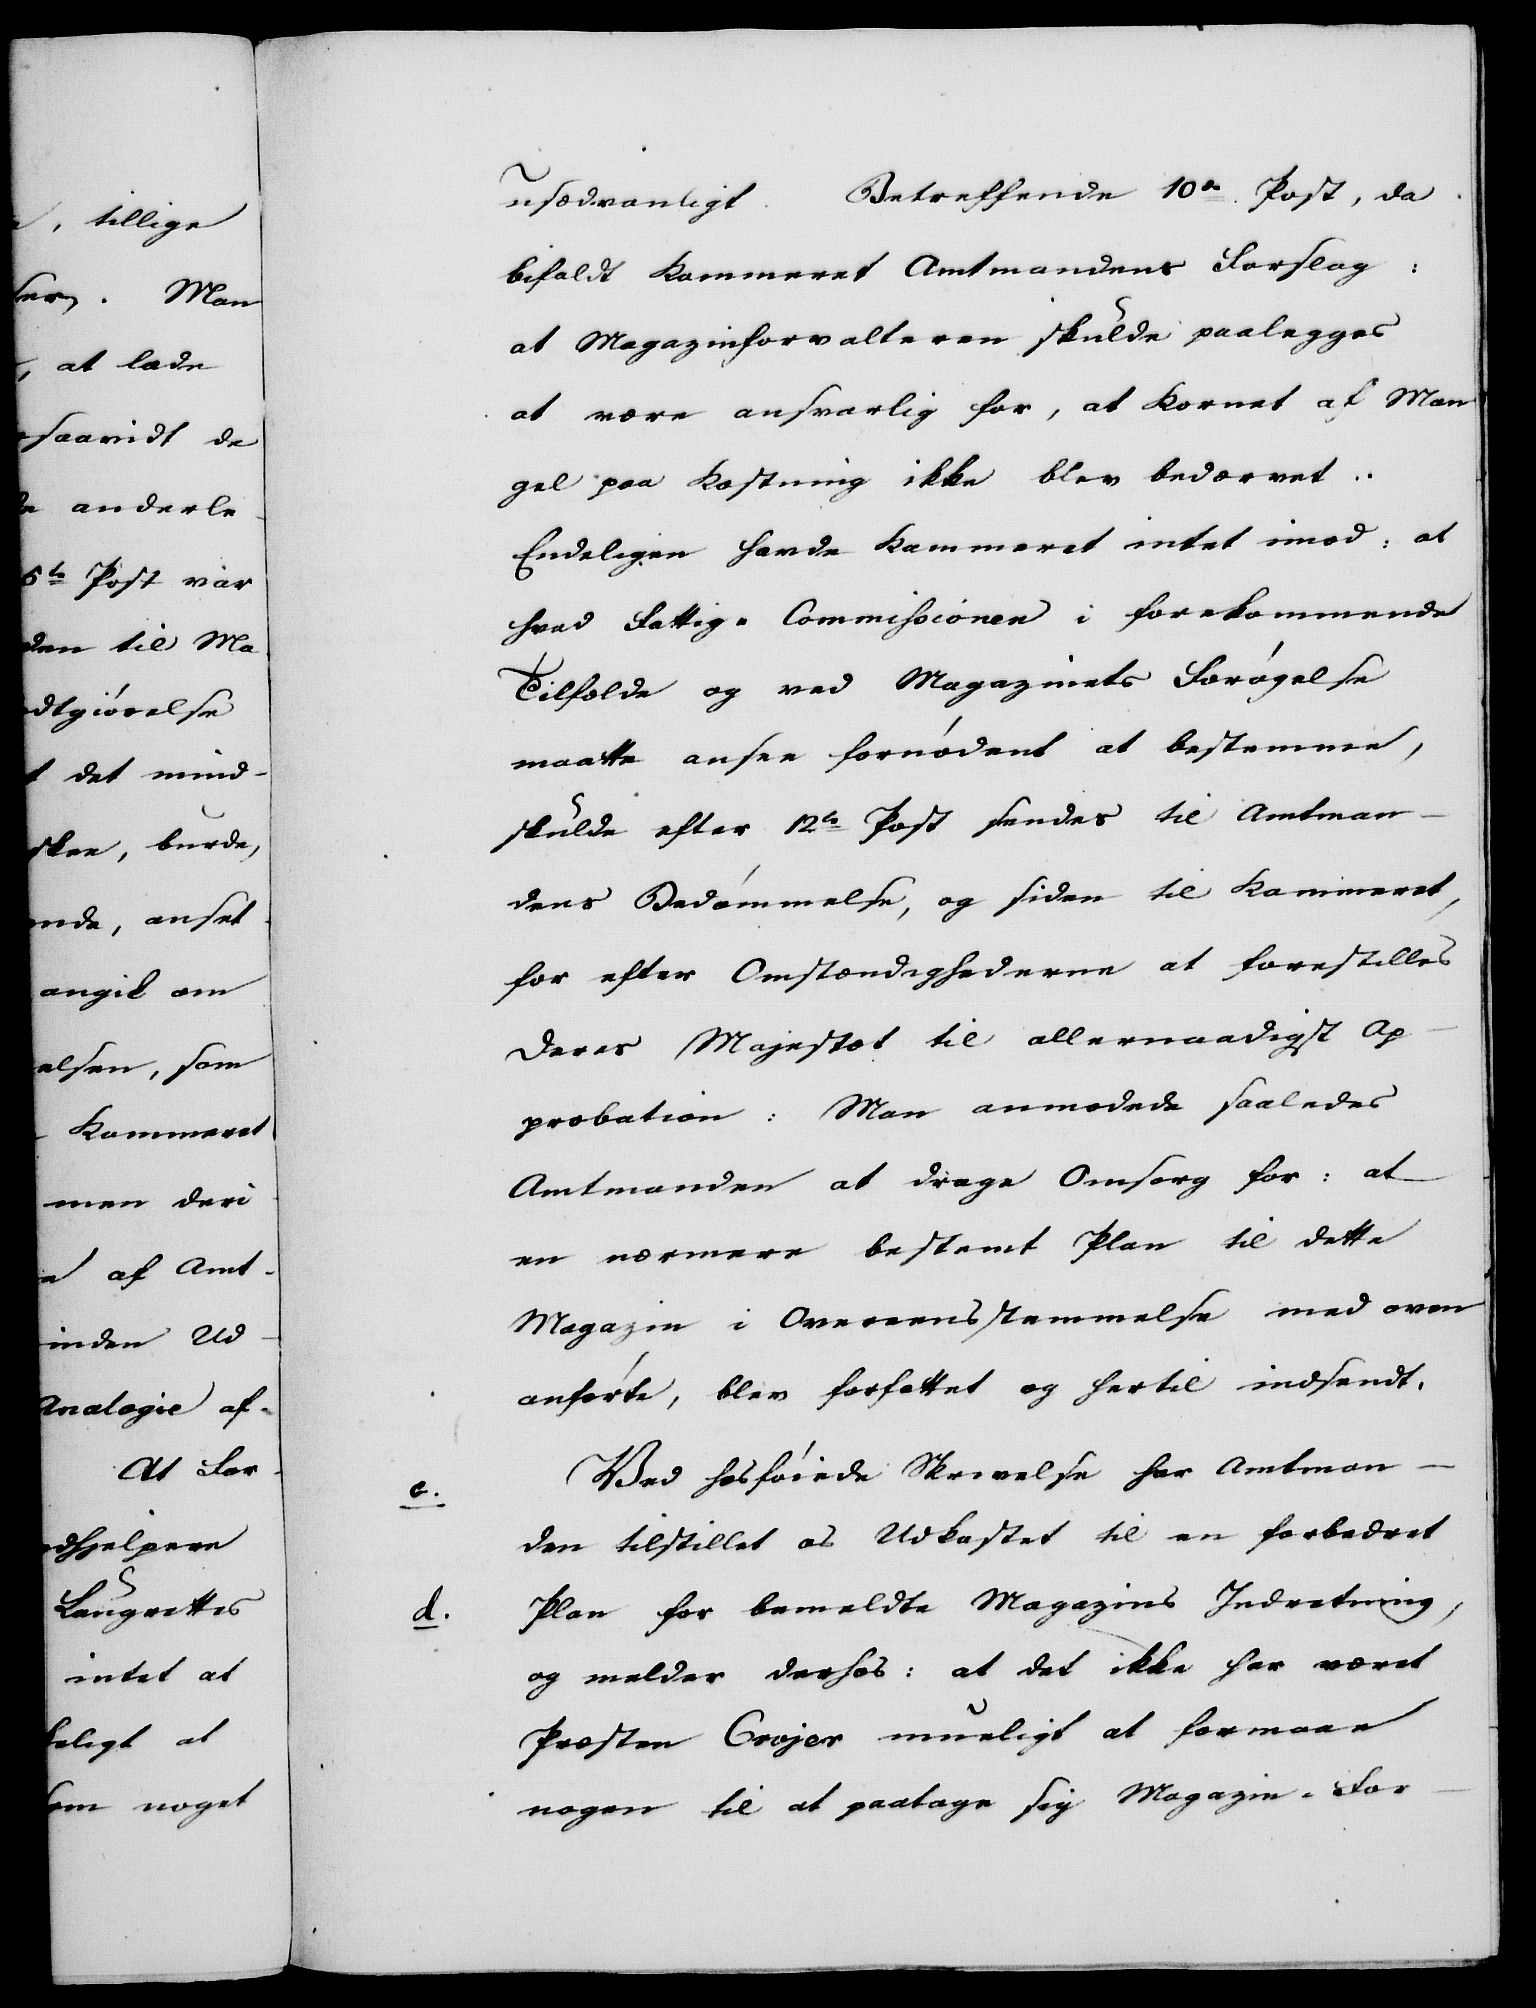 , tillige
ser. Man
, at lade
saavidt de
anderle
6te Post var
den til Ma
dtgiörelse
t det mind-
skee, burde,
ende, anset
angik om
elsen, som
Kammeret
men deri
af Amt-
inden Ud-
Analogie af-
At For-
dhjelpere
Laugrettes
intet at
keligt at
som noget
usædvanligt. Betreffende 10de Post, da
bifaldt Kammeret Amtmandens Forslag:
at Magazinforvalteren skulde paalægges
at være ansvarlig for, at Kornet af Man
gel paa Kastning ikke blev bedærvet.
Endeligen havde Kammeret intet imod: at
hvad Fattig-Commissionen i forekommende
Tilfælde og ved Magazinets Forøgelse
maatte ansee fornødent at bestemme,
skulde efter 12te Post sendes til Amtman-
dens Bedømmelse, og siden til Kammeret,
for efter Omstændighederne at forestilles
Deres Majestæt til allernaadigst Ap-
probation: Man anmodede saaledes
Amtmanden at drage Omsorg for: at
en nærmere bestemt Plan til dette
Magazin i Overeensstemmelse med oven
anførte, blev forfattet og hertil indsendt.
c. Ved hosföiede Skrivelse har Amtman-
den tilstillet os Udkastet til en forbedret
d. Plan for bemeldte Magazins Indretning,
og melder derhos: at det ikke har været
Præsten Crøjer mueligt at formaae
nogen til at paatage sig Magazin-For-